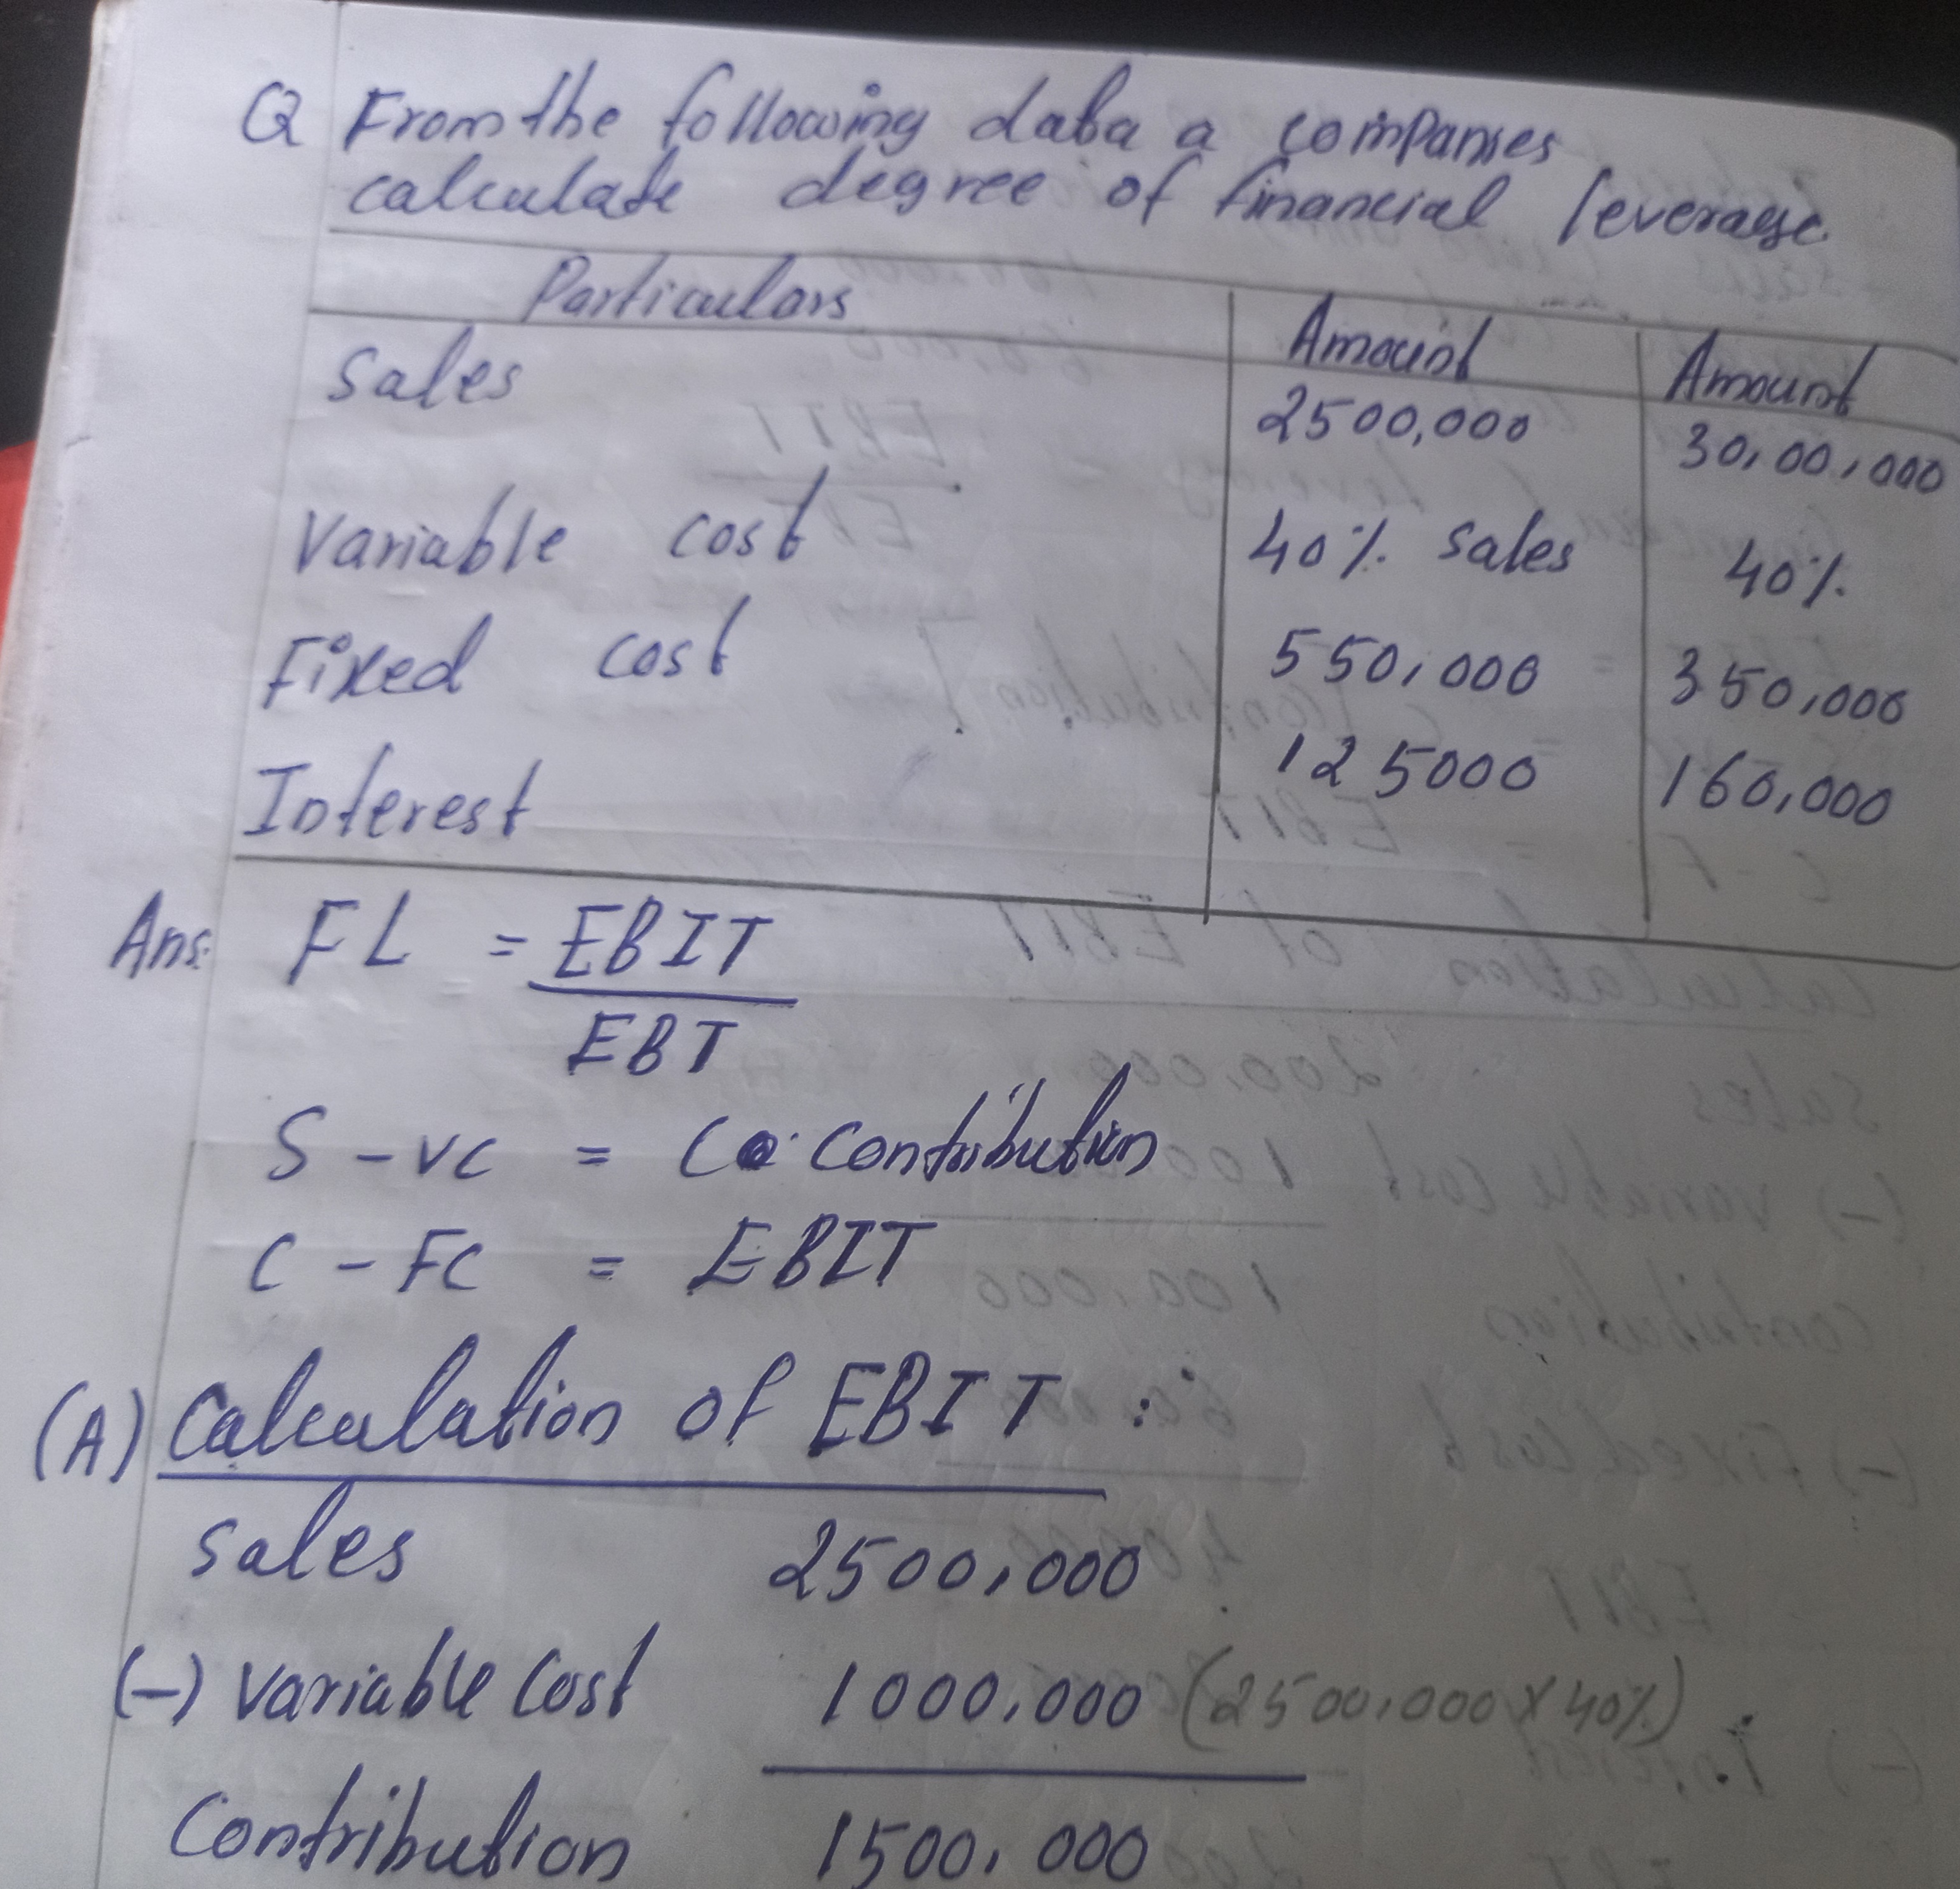 Q From the following data a companies
calculate degree of financial leverage
Particulars Amount Amount
Sales 2500,000 30,00,000
Variable cost 40% sales 40%
Fixed cost 550,000 350,000
Interest 125000 160,000
Ans: FL = EBIT
EBT
S - VC = C contribution
C - FC = EBIT
(A) Calculation of EBIT :
Sales 2500,000
(-) Variable Cost 1000,000 (2500,000 X 40%)
Contribution 1500,000